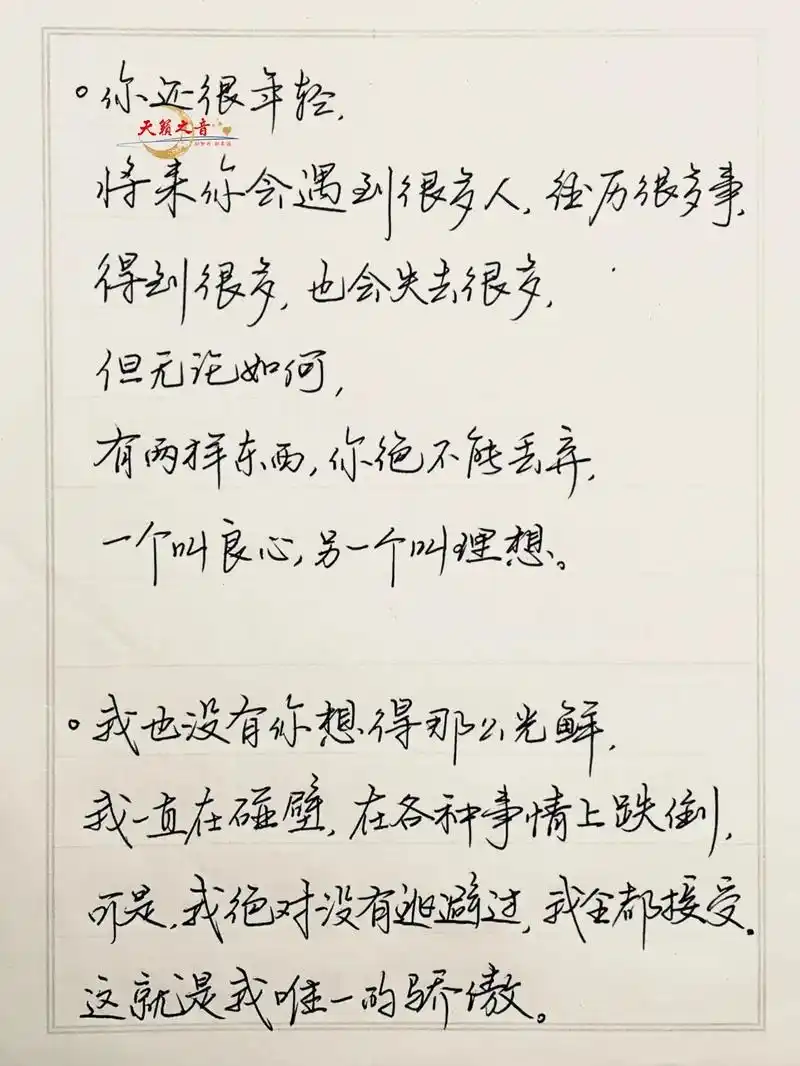 。你还很年轻,
天籁之音
将来你会遇到很多人,经历很多事,
得到很多,也会失去很多,
但无论如何,
有两样东西,你绝不能丢弃,
一个叫良心,另一个叫理想。
。我也没有你想得那么光鲜,
我一直在碰壁,在各种事情上跌倒,
可是,我绝对没有逃避过,我全都接受.
这就是我唯一的骄傲。